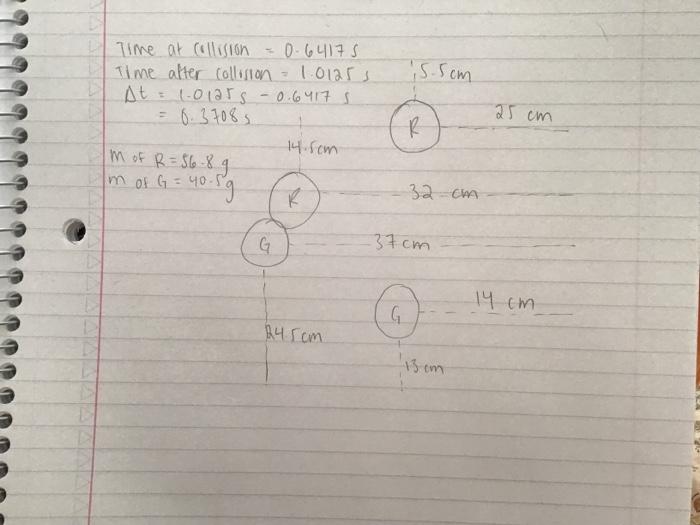 Time at collision = 0.6417 s
Time after collision = 1.0125 s
Δt = 1.0125 s - 0.6417 s
= 0.3708 s
5.5 cm
R
25 cm
14.5cm
m of R = 56.8 g
m of G = 40.5 g
R
32 cm
G
37 cm
G
14 cm
24.5 cm
13 cm